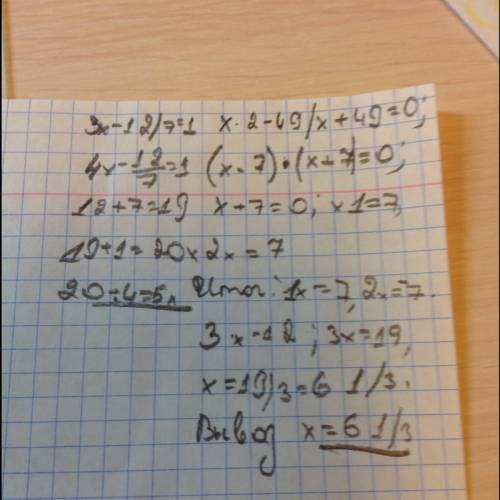 3x-12/7=1 x·2-49/x+49=0;
4x-12/7=1 (x-7)·(x+7)=0;
12+7=19 x+7=0; x1=7,
19+1=20 x2x=7
20÷4=5. Итог: 1x=7, 2x=-7.
3x-12; 3x=19,
x=19/3=6 1/3.
Вывод x=6 1/3